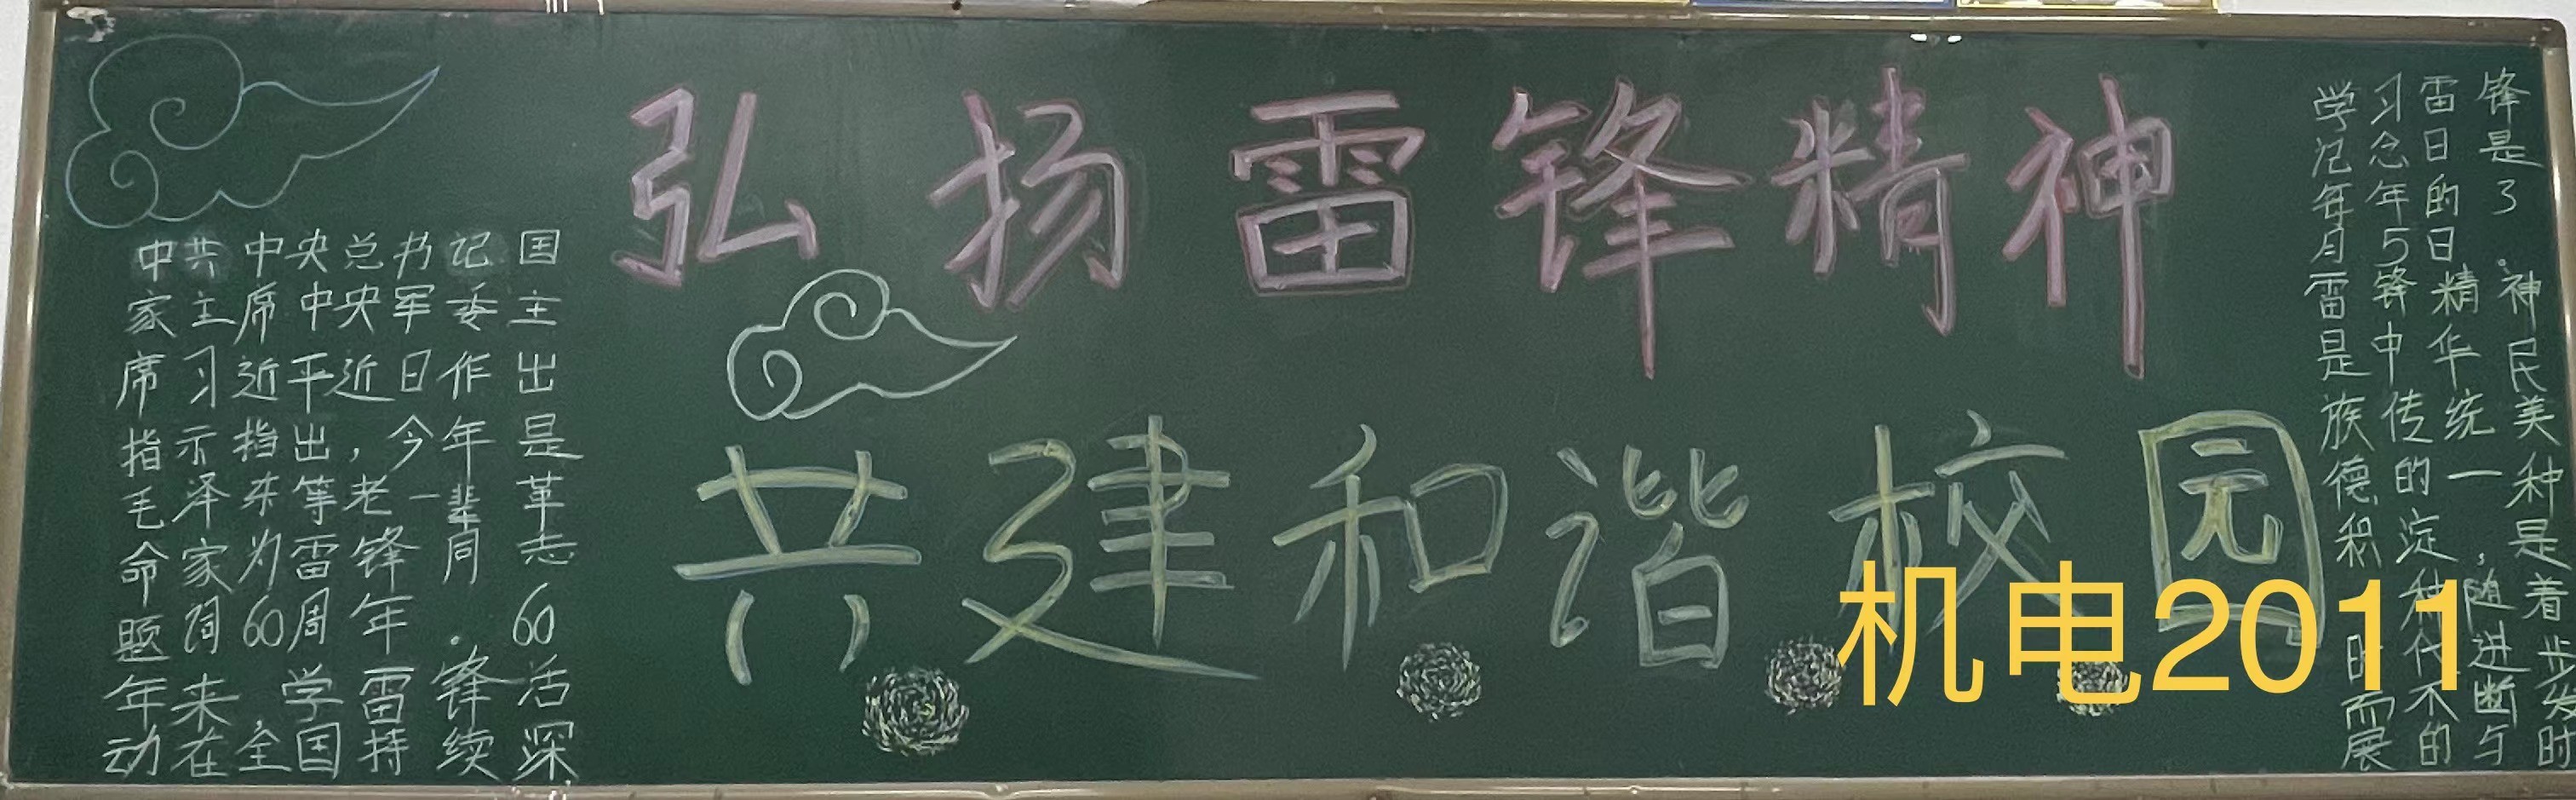 弘扬雷锋精神
共建和谐校园
中共中央总书记国
家主席中央军委主
席习近平近日作出
指示指出，今年是
毛泽东等老一辈革
命家为雷锋同志
题词60周年.60
年来，学雷锋活
动在全国持续深
学习雷锋
记念日是
每年的3
月5日.
雷锋精神
是中华民
族传统美
德的一种
积淀,是
种随着
时代进步
而不断发
展的与时
机电2011